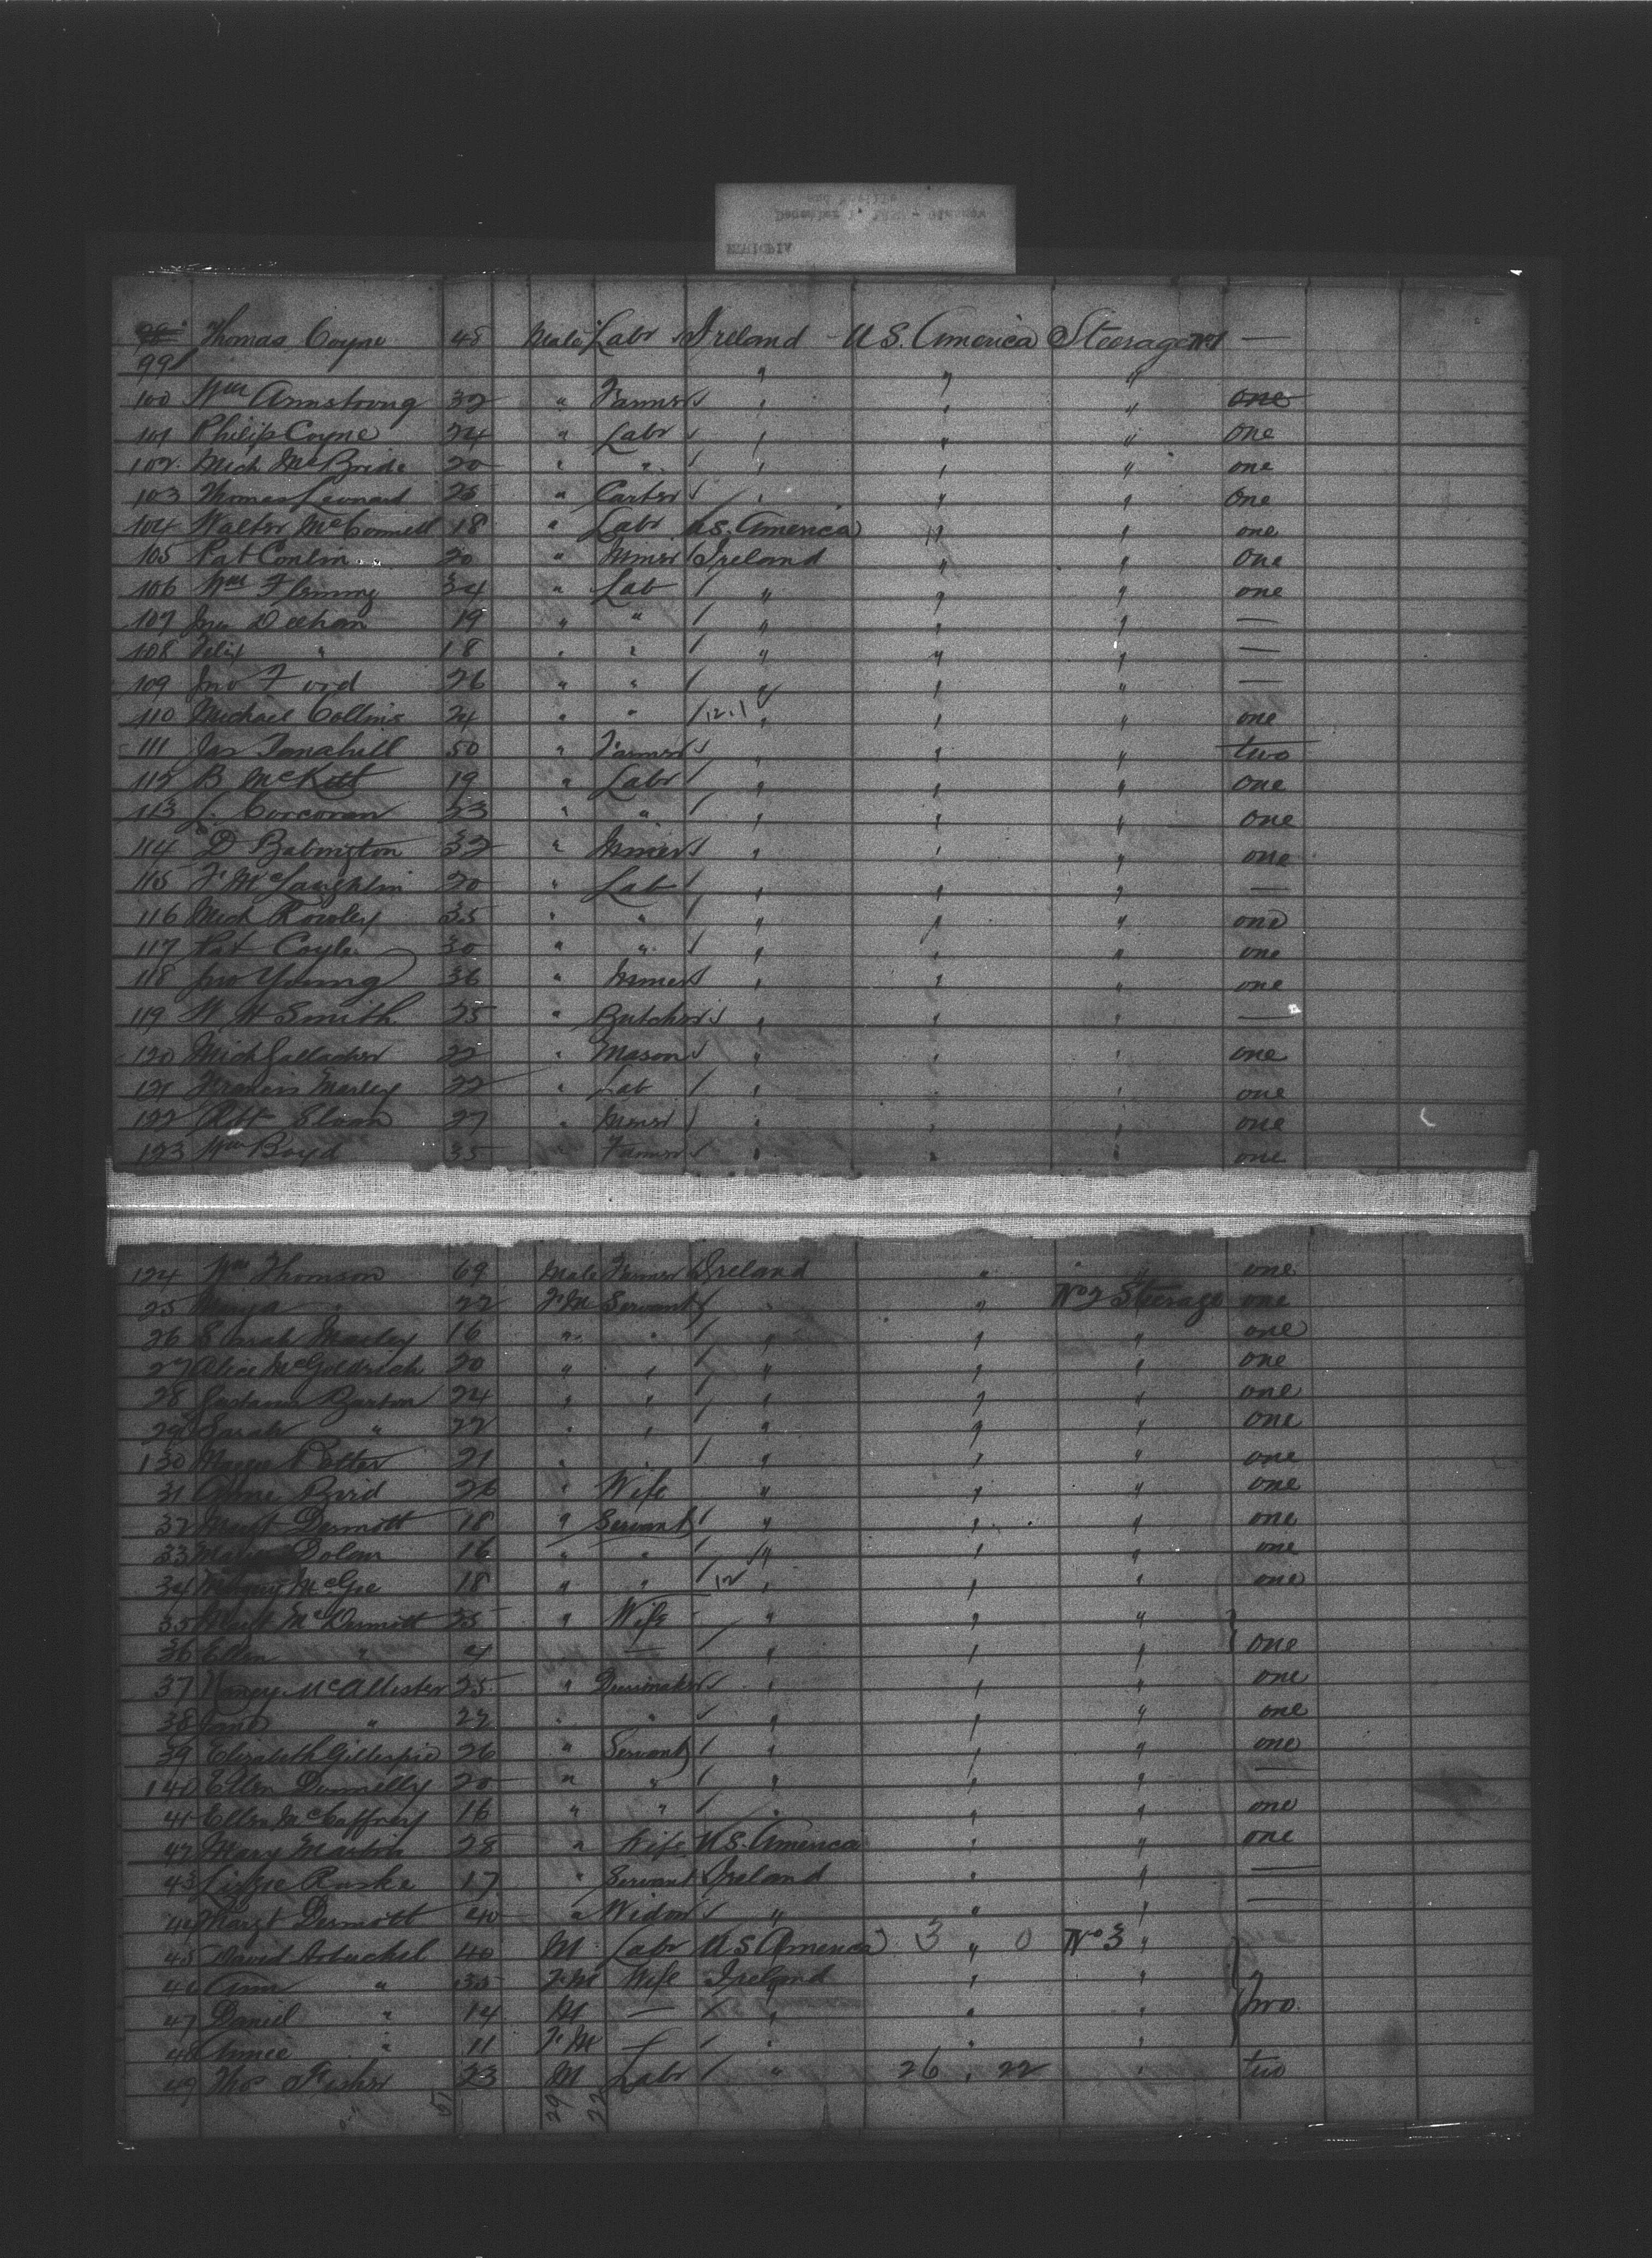 98 Thomas Coyne 48 Male Labr Ireland U.S. America Steerage No 1 —
99 " " "
100 Wm Armstrong 32 " Farmer " " " one
101 Philip Coyne 24 " Labr " " " One
102 Mich McBride 20 " " " " " one
103 Thomas Leonard 25 " Carter " " " One
104 Walter McConnell 18 " Labr U.S. America " " one
105 Pat Conlin 20 " Miner Ireland " " One
106 Wm Fleming 34 " Lab " " " one
107 Jno Deehan 19 " " " " " —
108 Felix " 18 " " " " " —
109 Jno Ford 26 " " " " " —
110 Michael Collins 24 " " 12.1 " " " one
111 Jas Tanahill 50 " Farmer " " " two
112 B McKett 19 " Labr " " " one
113 J. Corcoran 23 " " " " " one
114 D Babington 32 " Miner " " " one
115 F McLaughlin 20 " Lab " " " —
116 Mich Rowley 35 " " " " " one
117 Pat Coyle 30 " " " " " one
118 Jno Young 36 " Miner " " " one
119 W H Smith 25 " Butcher " " " —
120 Mich Gallacher 22 " Mason " " " one
121 Francis Marley 22 " Lab " " " one
122 Robt Sloan 27 " Miner " " " one
123 Wm Boyd 35 " Farmer " " " one
124 Wm Thomson 69 Male Farmer Ireland " " one
25 " 22 F.M Servant " " No 2 Steerage one
26 Sarah Marley 16 " " " " " one
27 Alice McGoldrich 20 " " " " " one
28 Barton 24 " " " " " one
29 Sarah " 22 " " " " " one
130 Maggie Potter 21 " " " " " one
31 Anne Bird 26 " Wife " " " one
32 Margt Dermott 18 " Servant " " " one
33 Dolan 16 " " " " " one
34 McGee 18 " " 12 " " " one
35 Margt McDermott 25 " Wife " " "
36 Ellen " 4 — " " " one
37 Nancy McAllister 25 " Dressmaker " " " one
38 Jane " 22 " " " " " one
39 Elizabeth Gillespie 26 " Servant " " " one
140 Ellen Donnelly 20 " " " " " —
41 Ellen McCaffrey 16 " " " " " one
42 Mary Martin 28 " Wife U.S. America " " one
43 Lizzie Ruske 17 " Servant Ireland " " —
44 Margt Dermott 40 " Widow " " " —
45 David Arbuckel 40 M Labr U S America 3 " 0 No 3 "
46 Ann " 35 F.M Wife Ireland " "
47 Daniel " 14 M — " " " two
48 Annie " 11 F.M — " " "
49 Thos Fisher 23 M Labr " 26 " 22 " two
51 29 22